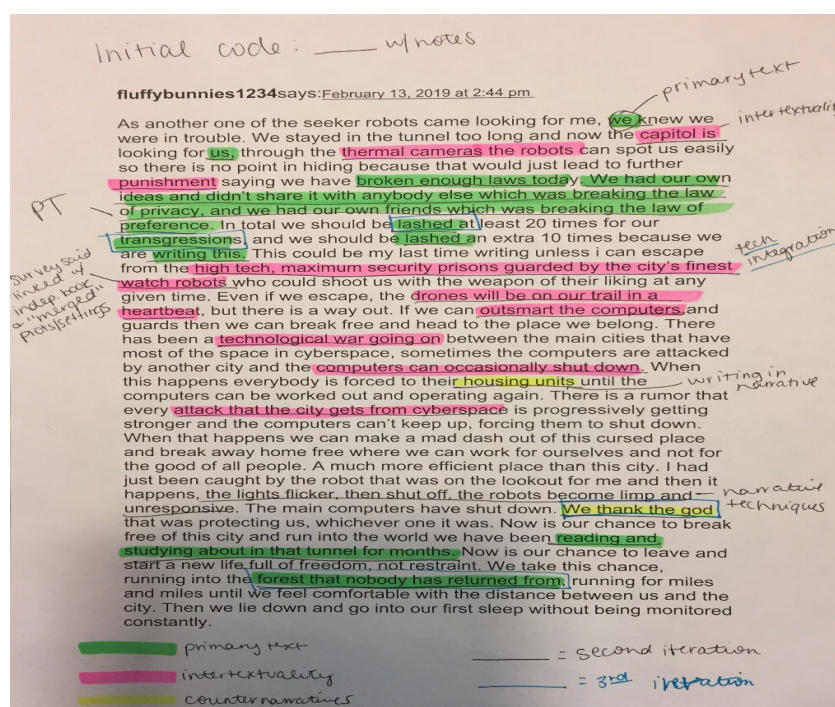 Initial code: ____ w/notes
primary text
fluffybunnies1234says:February 13, 2019 at 2:44 pm
intertextuality
As another one of the seeker robots came looking for me, we knew we
were in trouble. We stayed in the tunnel too long and now the capitol is
looking for us, through the thermal cameras the robots can spot us easily
so there is no point in hiding because that would just lead to further
punishment saying we have broken enough laws today. We had our own
ideas and didn't share it with anybody else which was breaking the law
PT
of privacy, and we had our own friends which was breaking the law of
preference. In total we should be lashed at least 20 times for our
transgressions and we should be lashed an extra 10 times because we
are writing this. This could be my last time writing unless i can escape
tech
integration
from the high tech, maximum security prisons guarded by the city's finest
survey said
linked w/
indep. book
a "merged"
plots/settings
watch robots who could shoot us with the weapon of their liking at any
given time. Even if we escape, the drones will be on our trail in a
heartbeat, but there is a way out. If we can outsmart the computers and
guards then we can break free and head to the place we belong. There
has been a technological war going on between the main cities that have
most of the space in cyberspace, sometimes the computers are attacked
by another city and the computers can occasionally shut down. When
this happens everybody is forced to their housing units until the
writing in
narrative
computers can be worked out and operating again. There is a rumor that
every attack that the city gets from cyberspace is progressively getting
stronger and the computers can't keep up, forcing them to shut down.
When that happens we can make a mad dash out of this cursed place
and break away home free where we can work for ourselves and not for
the good of all people. A much more efficient place than this city. I had
just been caught by the robot that was on the lookout for me and then it
happens, the lights flicker, then shut off, the robots become limp and
narrative
techniques
unresponsive. The main computers have shut down. We thank the god
that was protecting us, whichever one it was. Now is our chance to break
free of this city and run into the world we have been reading and
studying about in that tunnel for months. Now is our chance to leave and
start a new life full of freedom, not restraint. We take this chance,
running into the forest that nobody has returned from, running for miles
and miles until we feel comfortable with the distance between us and the
city. Then we lie down and go into our first sleep without being monitored
constantly.
primary text
intertextuality
counternarratives
____ = second iteration
____ = 3rd iteration